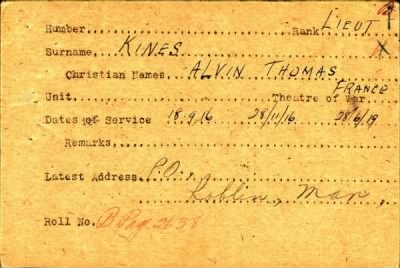 Number.................... Rank LIEUT
Surname KINES
Christian Names ALVIN THOMAS
Unit.................... Theatre of War FRANCE
Dates of Service 18.9.16 28/11/16 28/6/19
Remarks....................
Latest Address P.O.,
Roblin, Man.
Roll No. B Page 2638